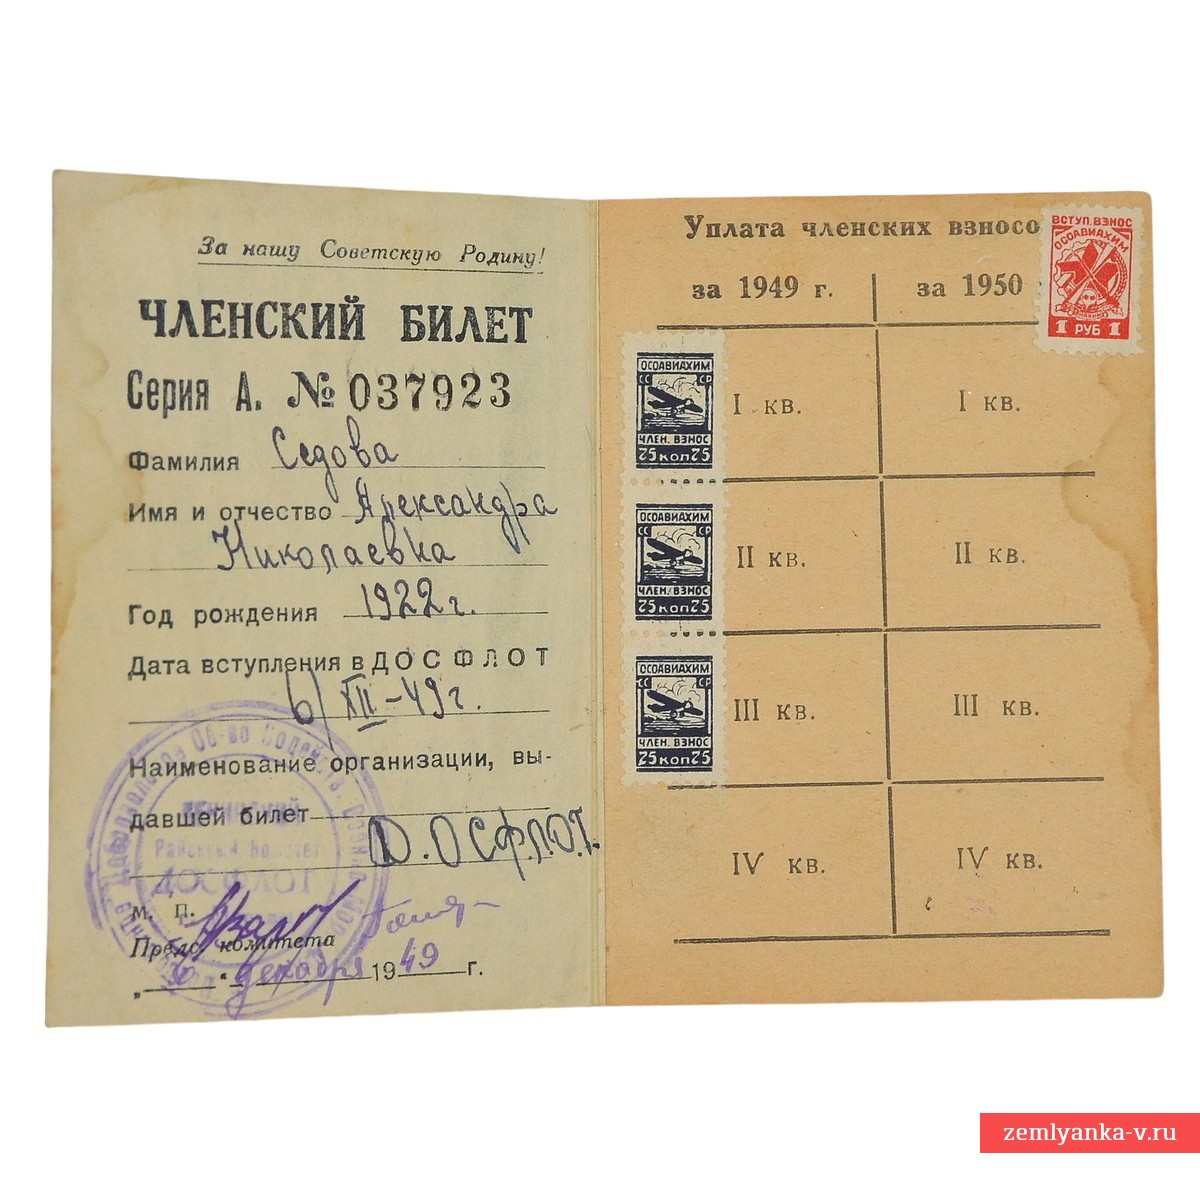 За нашу Советскую Родину!
ЧЛЕНСКИЙ БИЛЕТ
Серия А. № 037923
Фамилия Седова
Имя и отчество Александра
Николаевна
Год рождения 1922 г.
Дата вступления в ДОСФЛОТ
6/XII-49 г.
Наименование организации, вы-
давшей билет
Д.О.С.Ф.Л.О.Т.
Районный Комитет
ДОСФЛОТ
М. П.
Пред. комитета
„6" декабря 1949 г.
Уплата членских взносо
за 1949 г. за 1950
ВСТУП. ВЗНОС
ОСОАВИАХИМ
1 РУБ 1
ОСОАВИАХИМ
СС СР
ЧЛЕН. ВЗНОС
75 КОП 75
I кв. I кв.
ОСОАВИАХИМ
СС СР
ЧЛЕН. ВЗНОС
75 КОП 75
II кв. II кв.
ОСОАВИАХИМ
СС СР
ЧЛЕН. ВЗНОС
75 КОП 75
III кв. III кв.
IV кв. IV кв.
zemlyanka-v.ru